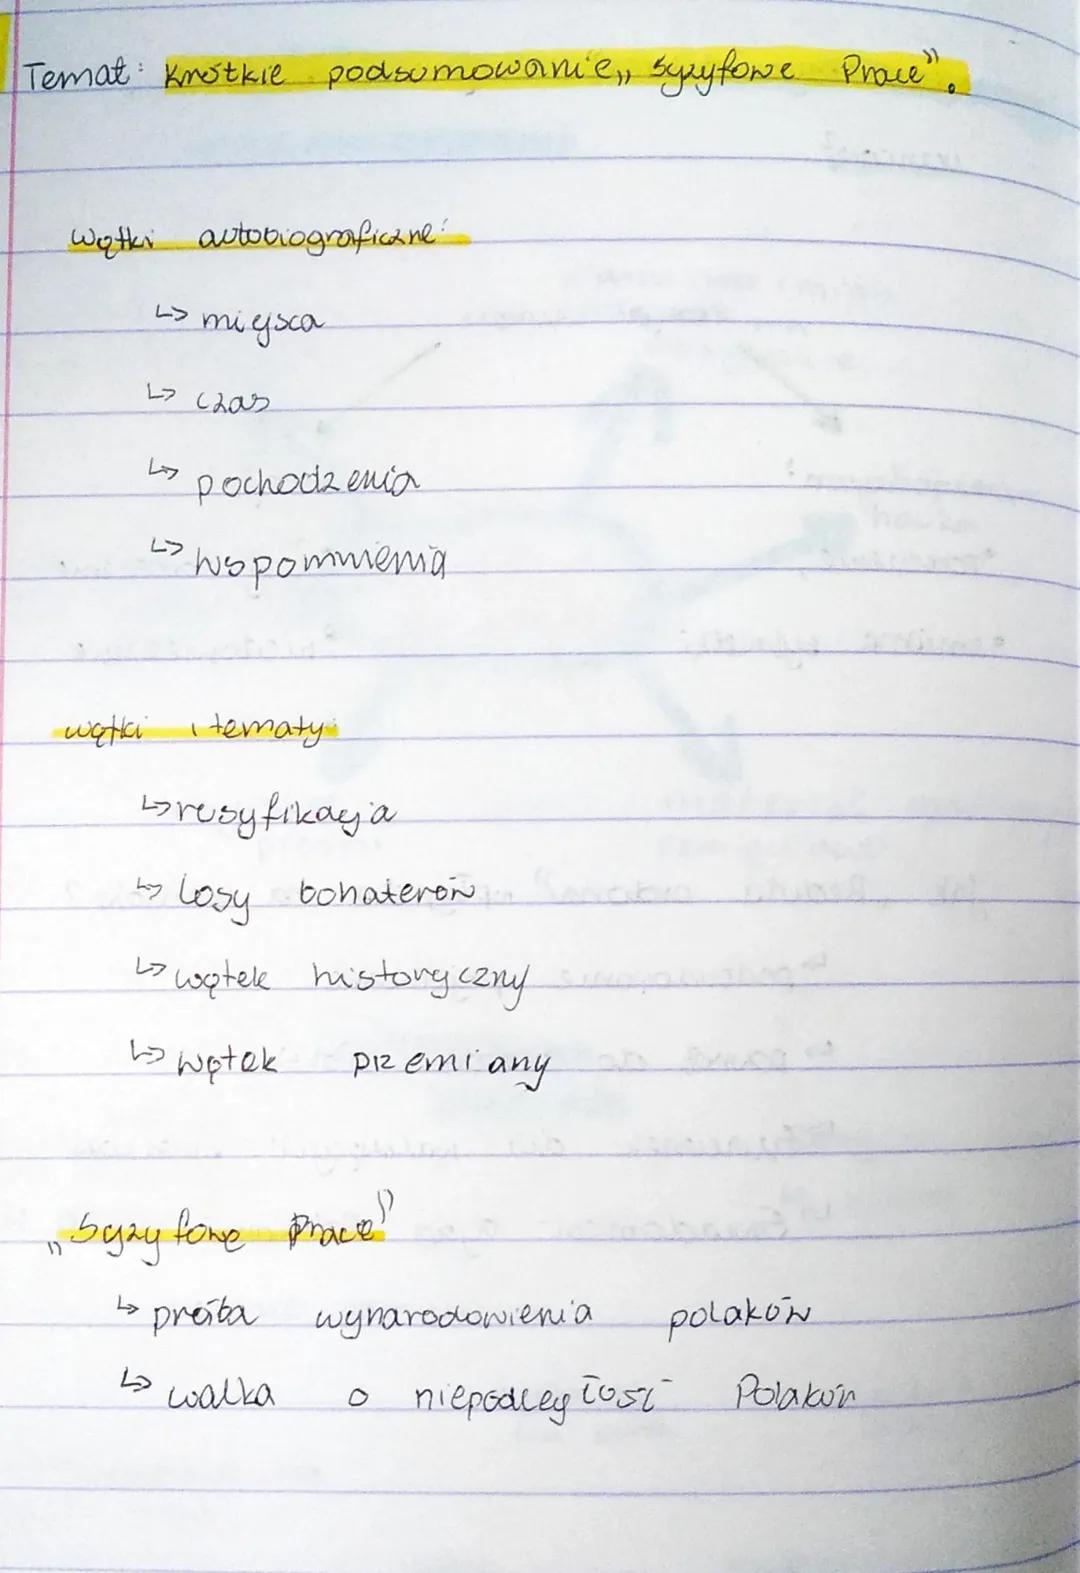 Temat: Krótkie podsumowanie „Syzyfowe Prace".
wątki autobiograficzne:
↳ miejsca
↳ czas
↳ pochodzenia
↳ wspomnienia
wątki i tematy:
↳ rusyfikacja
↳ losy bohaterów
↳ wątek historyczny
↳ wątek przemiany
„Syzyfowe Prace"
↳ próba wynarodowienia polaków
↳ walka o niepodległość Polaków